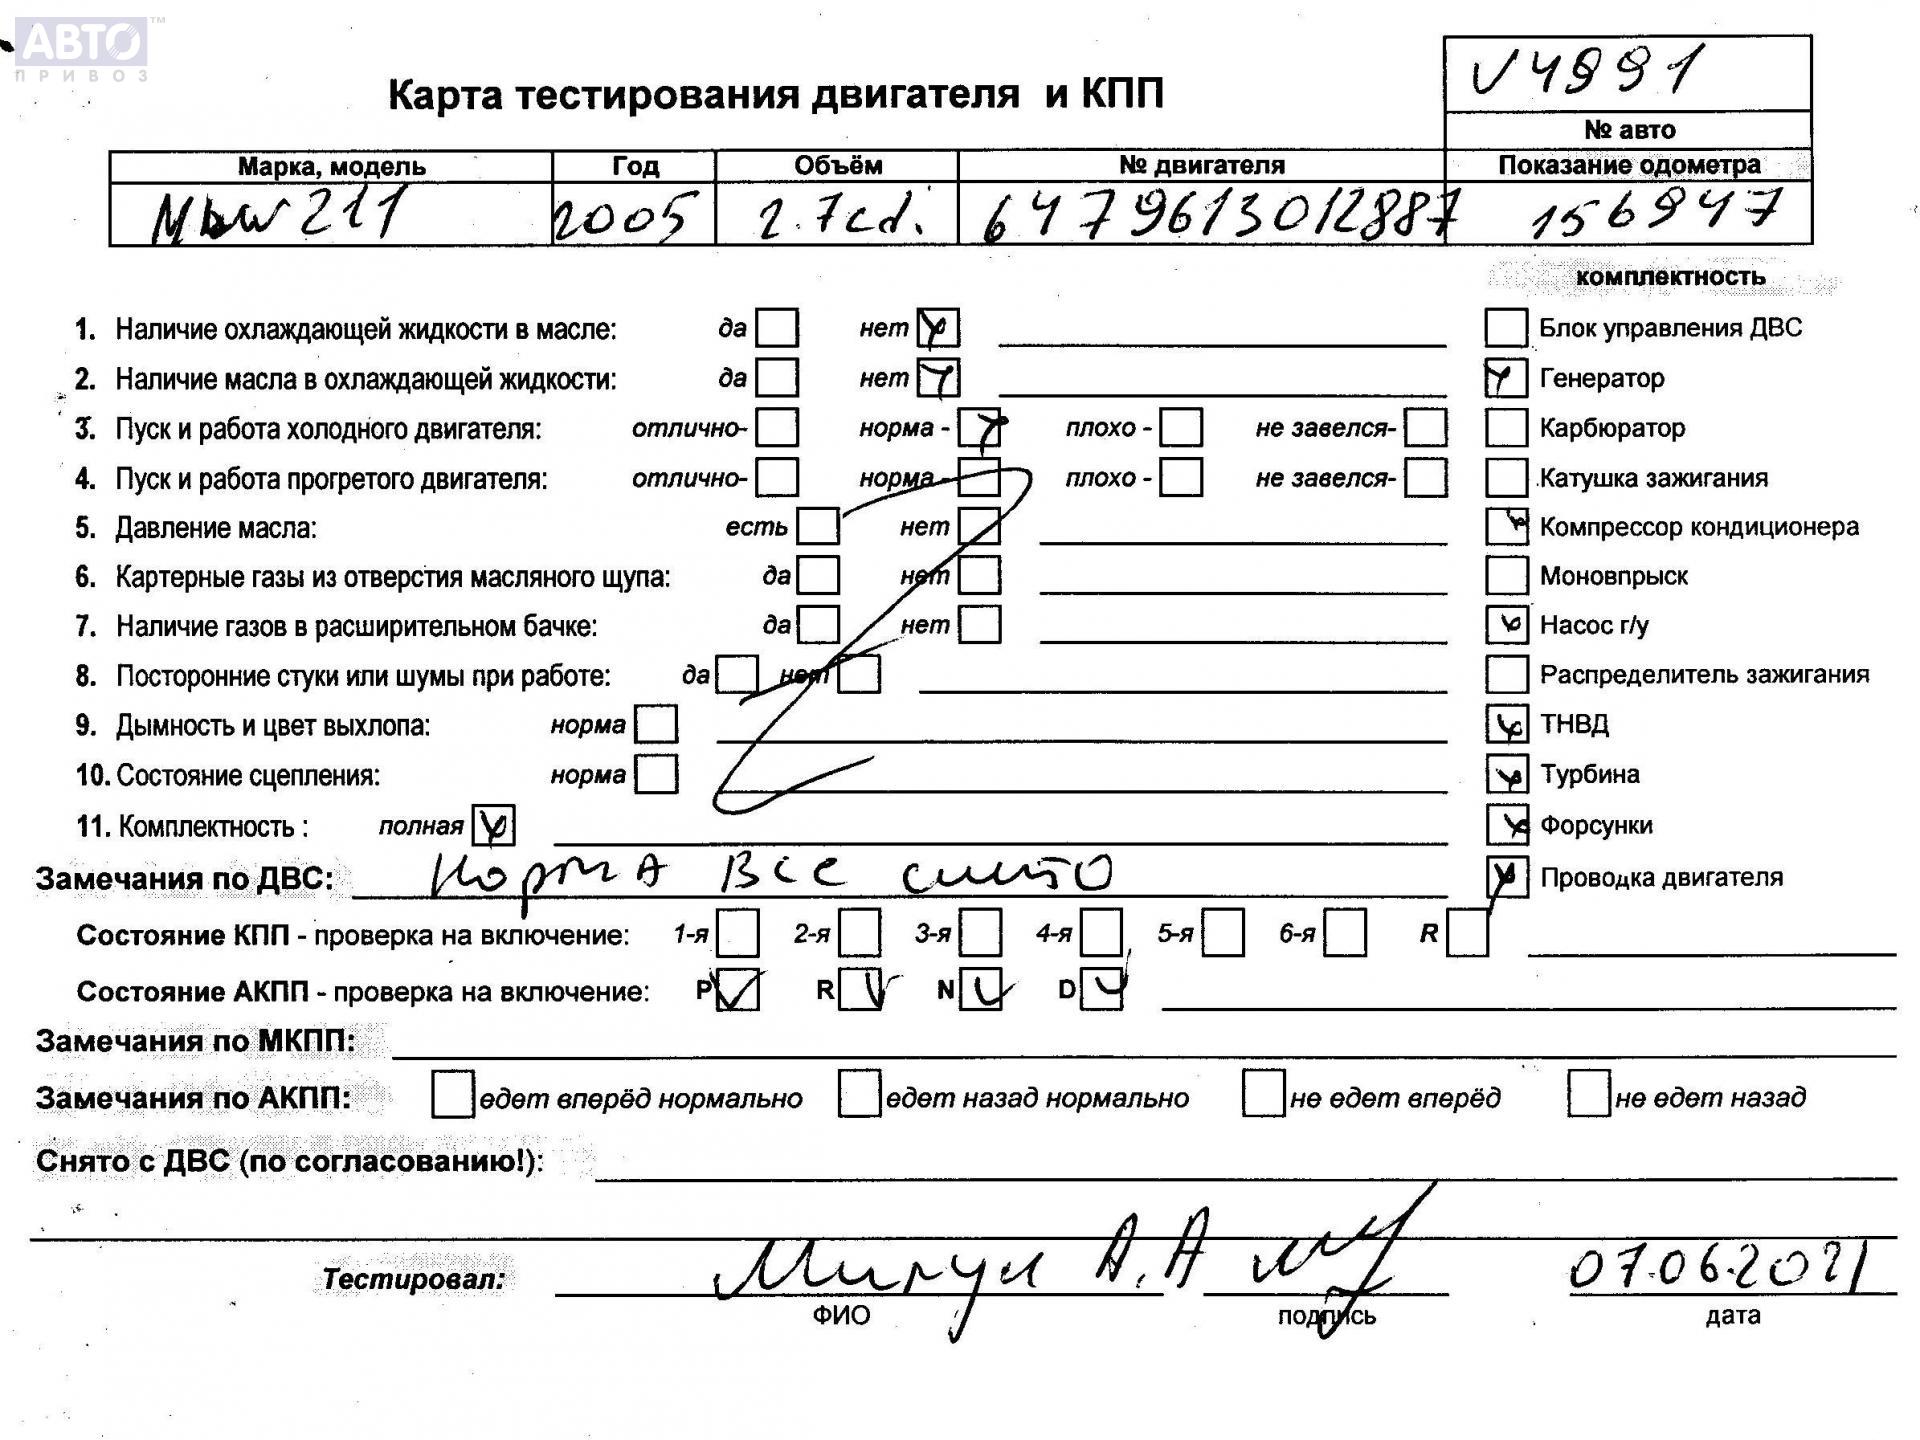 АВТО™
ПРИВОЗ
Карта тестирования двигателя и КПП
V4991
№ авто
Марка, модель Год Объём № двигателя Показание одометра
Mbw 211 2005 2.7cdi 6479613012887 156947
комплектность
1. Наличие охлаждающей жидкости в масле: да нет Блок управления ДВС
2. Наличие масла в охлаждающей жидкости: да нет Генератор
3. Пуск и работа холодного двигателя: отлично- норма - плохо - не завелся- Карбюратор
4. Пуск и работа прогретого двигателя: отлично- норма - плохо - не завелся- Катушка зажигания
5. Давление масла: есть нет Компрессор кондиционера
6. Картерные газы из отверстия масляного щупа: да нет Моновпрыск
7. Наличие газов в расширительном бачке: да нет Насос г/у
8. Посторонние стуки или шумы при работе: да нет Распределитель зажигания
9. Дымность и цвет выхлопа: норма ТНВД
10. Состояние сцепления: норма Турбина
11. Комплектность : полная Форсунки
Замечания по ДВС: Норма Все Проводка двигателя
Состояние КПП - проверка на включение: 1-я 2-я 3-я 4-я 5-я 6-я R
Состояние АКПП - проверка на включение: P R N D
Замечания по МКПП:
Замечания по АКПП: едет вперёд нормально едет назад нормально не едет вперёд не едет назад
Снято с ДВС (по согласованию!):
Тестировал: А.А 07.06.2021
ФИО подпись дата